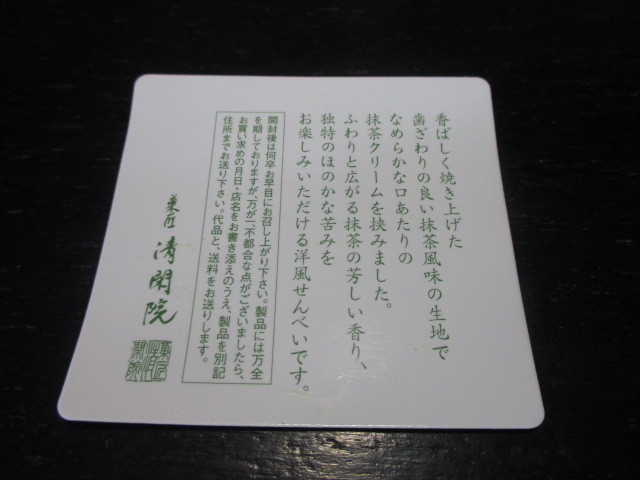 香ばしく焼き上げた
歯ざわりの良い抹茶風味の生地で
なめらかな口あたりの
抹茶クリームを挟みました。
ふわりと広がる抹茶の芳しい香り、
独特のほのかな苦みを
お楽しみいただける洋風せんべいです。
開封後は何卒お早目にお召し上がり下さい。製品には万全
を期しておりますが、万が一不都合な点がございましたら、
お買い求めの月日・店名をお書き添えのうえ、製品を別記
住所までお送り下さい。代品と、送料をお送りします。
菓匠 清閑院